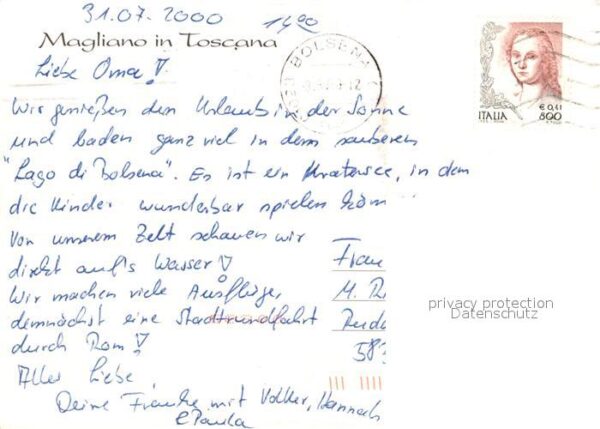 31.07.2000 14⁰⁰
Magliano in Toscana
Liebe Oma!
BOLSENA
€ 0,41
ITALIA 800
Wir genießen den Urlaub in der Sonne
und baden ganz viel in dem sauberen
"Lago di Bolsena". Es ist ein Kratersee, in dem
die Kinder wunderbar spielen
Von unserem Zelt schauen wir
direkt auf's Wasser!
Wir machen viele Ausflüge,
demnächst eine Stadtrundfahrt
durch Rom!
Alles Liebe,
Deine Frauke mit Volker, Hannah
& Paula
Frau
M. R
583
privacy protection
Datenschutz